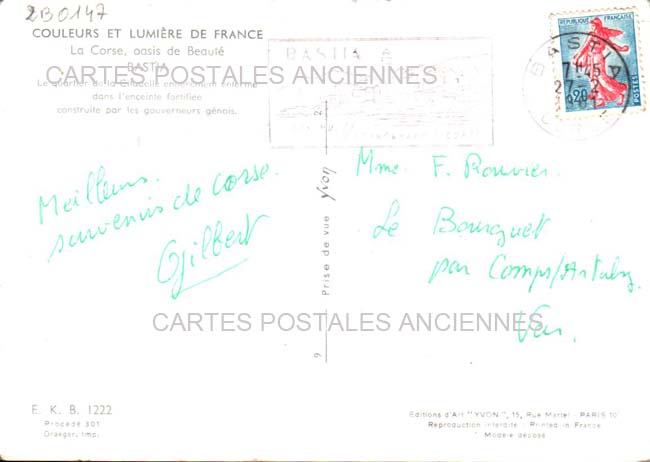 2B0147
COULEURS ET LUMIÈRE DE FRANCE
La Corse, oasis de Beauté
BASTIA
Le quartier de la Citadelle entièrement enfermé
dans l'enceinte fortifiée
construite par les gouverneurs génois.
BASTIA
REPUBLIQUE FRANÇAISE
POSTES
0,20
BASTIA
7H45
27-2
CARTES POSTALES ANCIENNES
Meilleurs
souvenirs de Corse.
Gilbert
Prise de vue Yvon
Mme. F. Rouvier.
Le Bourguet
par Comps/Artuby
Var.
CARTES POSTALES ANCIENNES
E. K. B. 1222
Procédé 301
Draeger, imp.
Editions d'Art "YVON", 15, Rue Martel - PARIS 10
Reproduction interdite - Printed in France
Modèle déposé